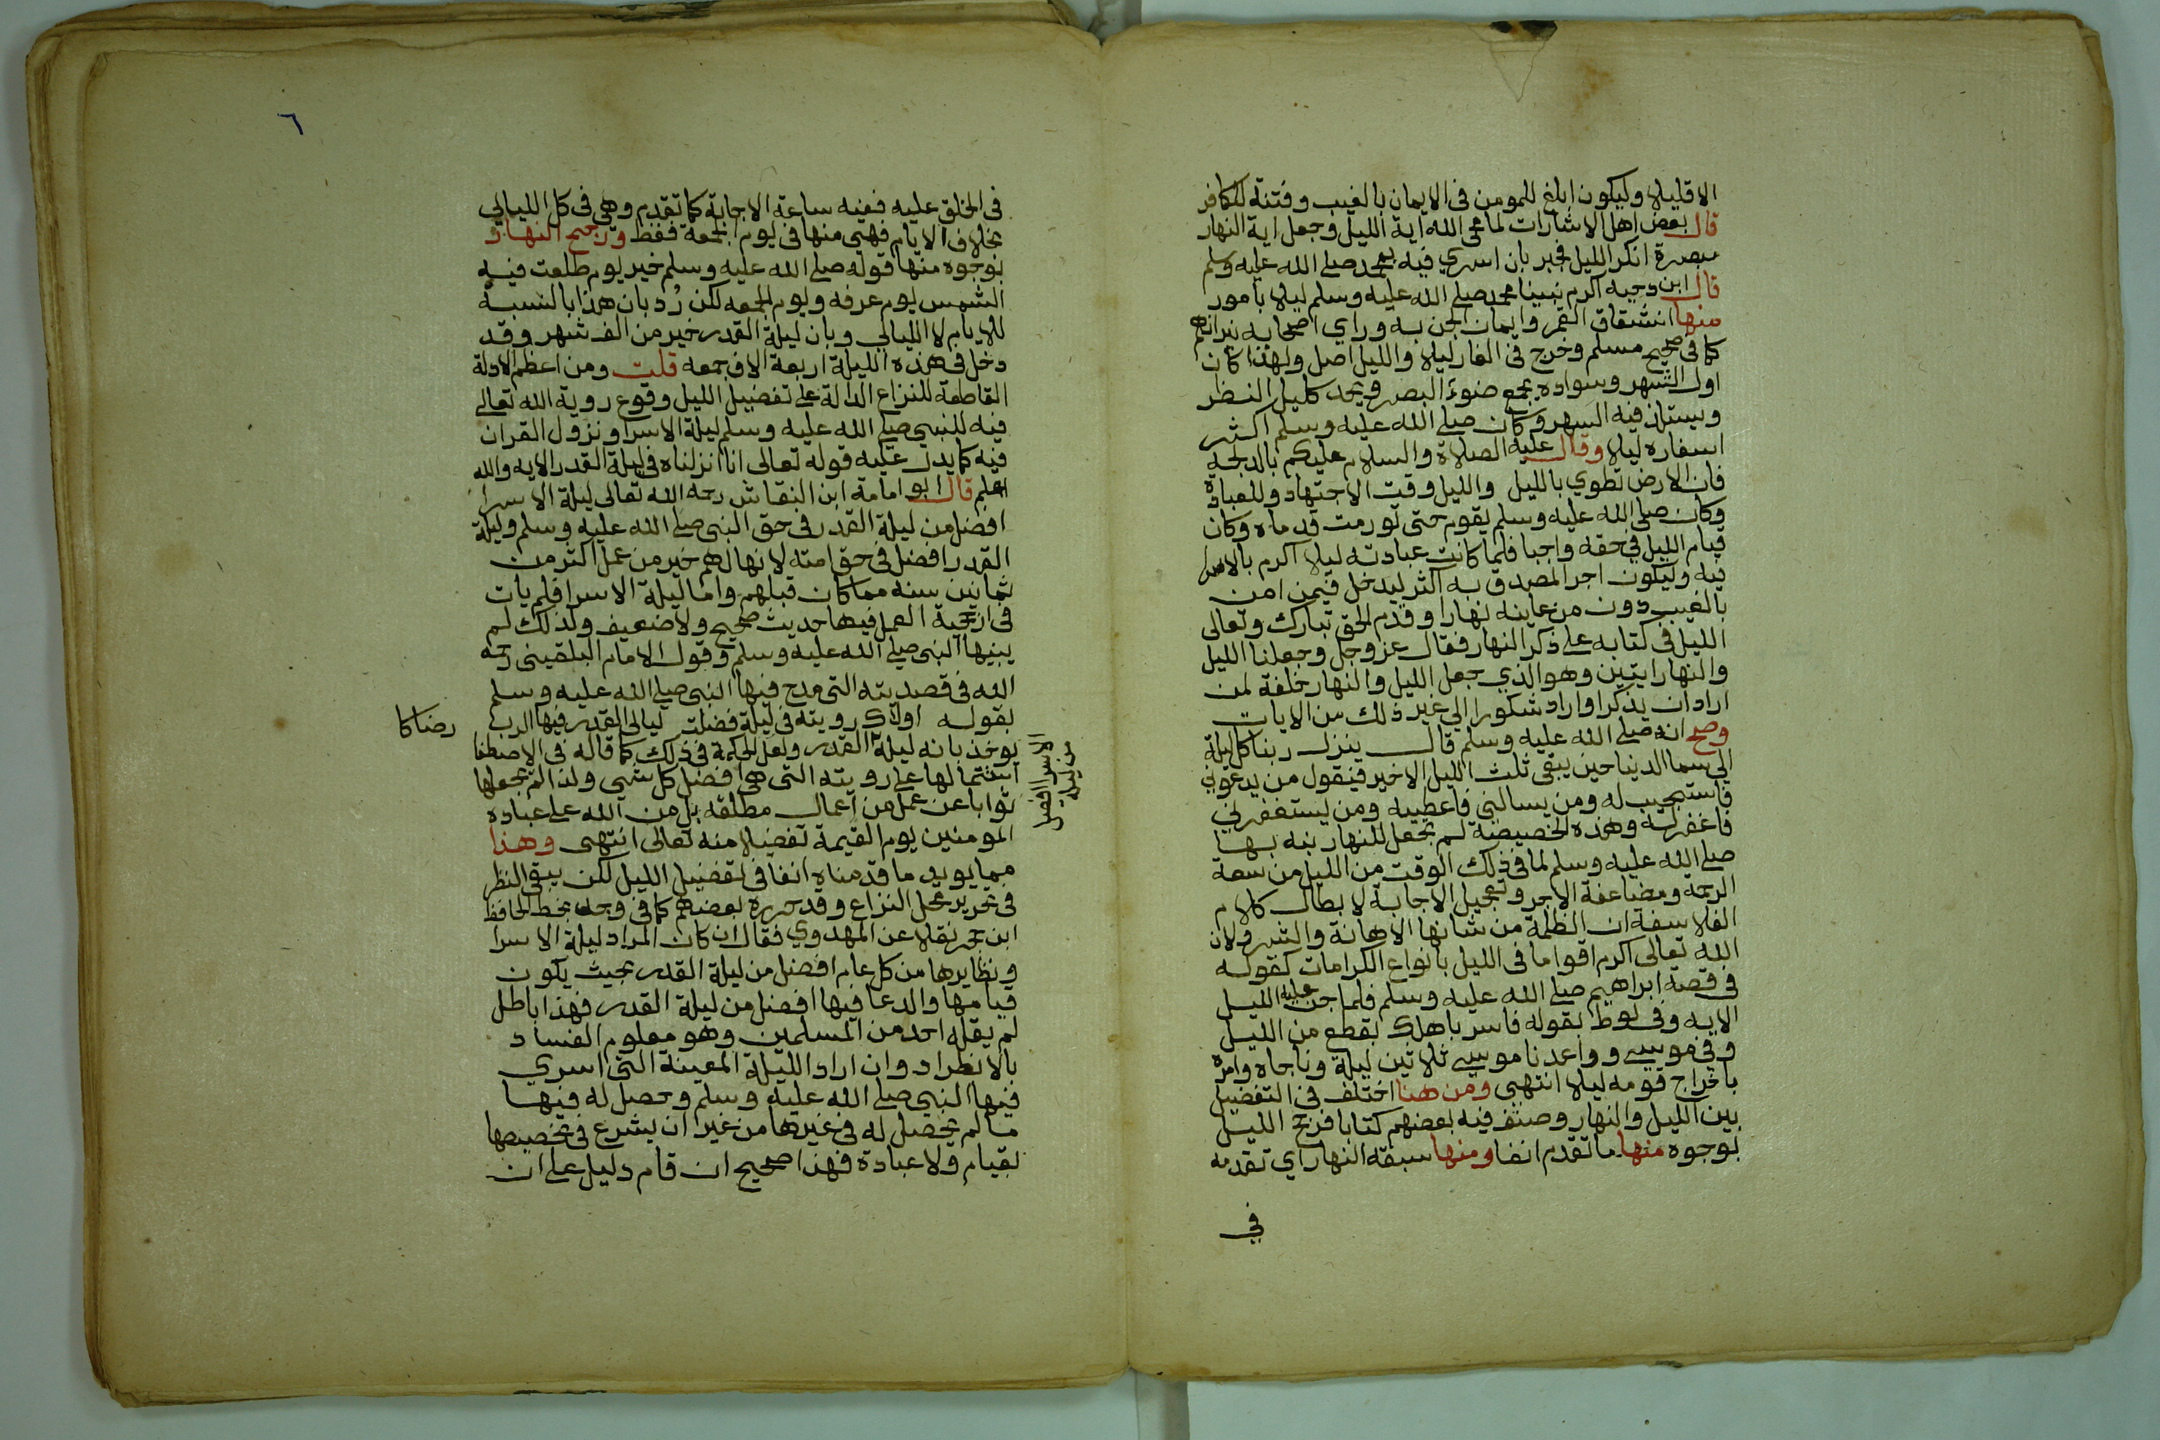 الا قليلا وليكون ابلغ للمومن في الايمان بالغيب وفتنة للكافر
قال بعض اهل الاشارات لما محى الله اية الليل وجعل اية النهار
مبصرة انكسر الليل فجبر بان اسري فيه بمحمد صلى الله عليه وسلم
قال ابن دحيه اكرم نبينا محمد صلى الله عليه وسلم ليلا بامور
منها انشقاق القمر وايمان الجن به وراي اصحابه نيرانهم
كما في صحيح مسلم وخرج في الغار ليلا والليل اصل ولهذا كان
اول الشهر وسواده يجمع ضوء البصر ويحد كليل النظر
ويستلذ فيه السهر وكان صلى الله عليه وسلم اكثر
اسفاره ليلا وقال عليه الصلاة والسلام عليكم بالدلجة
فان الارض تطوي بالليل والليل وقت الاجتهاد وللعبادة
وكان صلى الله عليه وسلم يقوم حتى تورمت قدماه وكان
قيام الليل في حقه واجبا فلما كانت عبادته ليلا اكرم بالاسرا
فيه وليكون اجر المصدق به اكثر ليدخل فيمن امن
بالغيب دون من عاينه نهارا وقدم الحق تبارك وتعالى
الليل في كتابه على ذكر النهار فقال عز وجل وجعلنا الليل
والنهار ايتين وهو الذي جعل الليل والنهار خلفة لمن
اراد ان يذكر او اراد شكورا الي غير ذلك من الايات
وصح انه صلى الله عليه وسلم قال ينزل ربنا كل ليلة
الي سما الدنيا حين يبقى ثلث الليل الاخير فيقول من يدعوني
فاستجيب له ومن يسالني فاعطيه ومن يستغفرني
فاغفر له وهذه الخصيصة لم تجعل للنهار نبه بها
صلى الله عليه وسلم لما في ذلك الوقت من الليل من سعة
الرحمه ومضاعفة الاجر وتعجيل الاجابة لابطال كلام
الفلاسفة ان الظلمة من شانها الاهانة والشر ولان
الله تعالى اكرم اقواما في الليل بانواع الكرامات كقوله
في قصة ابراهيم صلى الله عليه وسلم فلما جن عليه الليل
الايه وفي لوط بقوله فاسر باهلك بقطع من الليل
وفي موسى وواعدنا موسى ثلاثين ليلة وناجاه وامره
باخراج قومه ليلا انتهى ومن هنا اختلف في التفضيل
بين الليل والنهار وصنف فيه بعضهم كتابا فرجح الليل
بوجوه منها ما تقدم انفا ومنها سبقه النهار اي تقدمه
في
٦
في الخلق عليه ففيه ساعة الاجابة كما تقدم وهي في كل الليالي
بخلاف الايام فهي منها في يوم الجمعه فقط ورجح النهار
بوجوه منها قوله صلى الله عليه وسلم خير يوم طلعت فيه
الشمس يوم عرفه ويوم الجمعه لكن رُد بان هذا بالنسبة
للايام لا الليالي وبان ليلة القدر خير من الف شهر وقد
دخل في هذه الليلة اربعة الاف جمعه قلت ومن اعظم الادلة
القاطعة للنزاع الدالة على تفضيل الليل وقوع روية الله تعالى
فيه للنبي صلى الله عليه وسلم ليلة الاسرا ونزول القران
فيه كما يدل عليه قوله تعالى انا انزلناه في ليلة القدر الايه والله
اعلم قال ابو امامة ابن النقاش رحمه الله تعالى ليلة الاسرا
افضل من ليلة القدر في حق النبي صلى الله عليه وسلم وليلة
القدر افضل في حق امته لانها لهم خير من عمل اكثر من
ثمانين سنه مما كان قبلهم واما ليلة الاسرا فلم يات
في ارجحية العمل فيها حديث صحيح ولا ضعيف ولذلك لم
يبنيها النبي صلى الله عليه وسلم وقول الامام البلقيني رحمه
الله في قصيدته التي مدح فيها النبي صلى الله عليه وسلم
بقوله اولاك رويته في ليلة فضلت ليالي القدر فيها الرب رضاكا
يوخذ بانه ليلة القدر ولعل الحكمة في ذلك كما قاله في الاصطفا
الاسرا افضل
من ليلة
اشتمالها على رويته التي هي افضل كل شي ولذا لم يجعلها
ثوابا عن عمل من اعمال مطلقه بل من الله على عباده
المومنين يوم القيمة تفضلا منه تعالى انتهى وهذا
مما يويد ما قدمناه انفا في تفضيل الليل لكن يبقى النظر
في تحرير محل النزاع وقد حرره بعضهم كما في وجد بخط الحافظ
ابن حجر نقلا عن المهدوي فقال ان كان المراد ليلة الاسرا
ونظايرها من كل عام افضل من ليلة القدر بحيث يكون
قيامها والدعا فيها افضل من ليلة القدر فهذا باطل
لم يقله احد من المسلمين وهو معلوم الفساد
بالاطراد وان اراد الليلة المعينة التي اسري
فيها النبي صلى الله عليه وسلم وحصل له فيها
ما لم يحصل له في غيرها من غير ان يشرع في تخصيصها
لقيام ولا عبادة فهذا صحيح ان قام دليل على ان